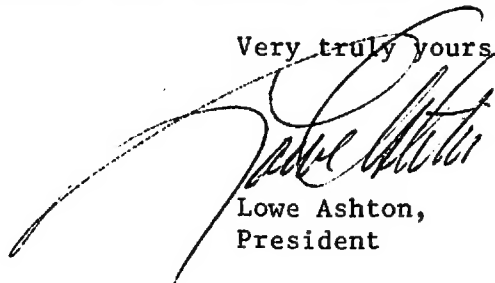 Very truly yours
Lowe Ashton
Lowe Ashton,
President